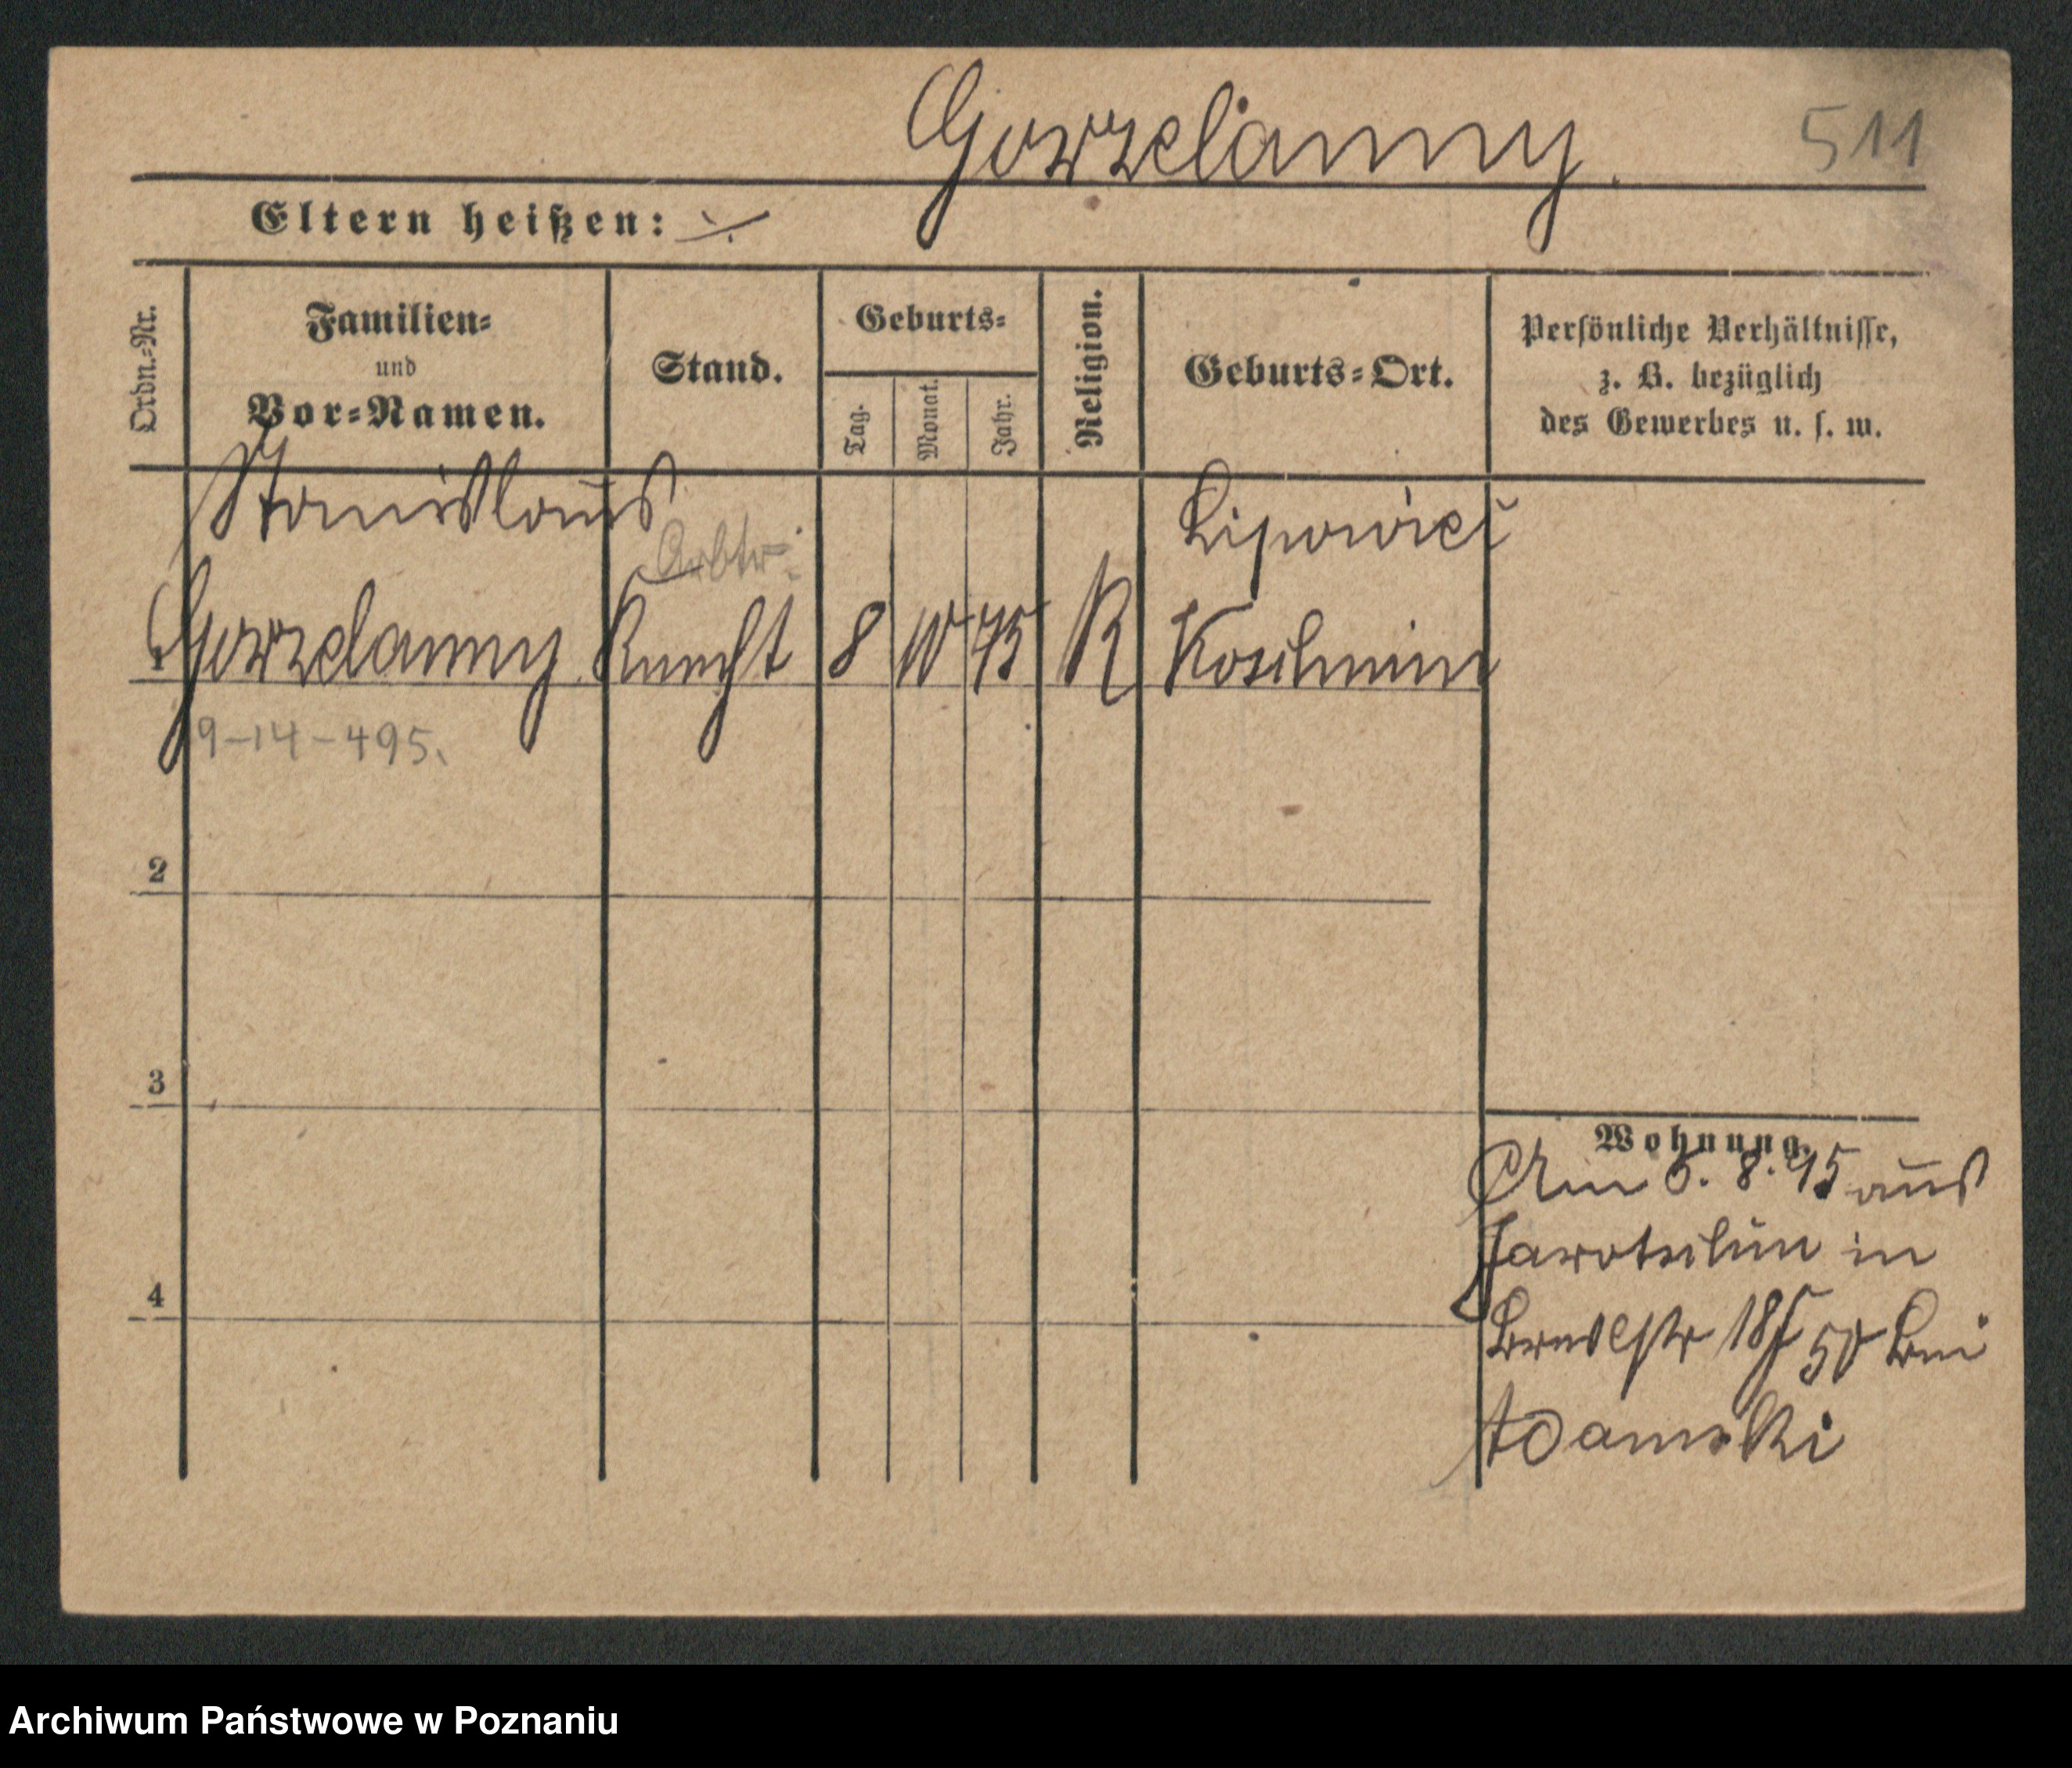 Gorzelanny. 511
Eltern heißen: ·/·
Ordn.-Nr.
Familien-
und
Vor-Namen.
Stand.
Geburts-
Tag.
Monat.
Jahr.
Religion.
Geburts-Ort.
Persönliche Verhältnisse,
z. B. bezüglich
des Gewerbes u. s. w.
Stanislaus Lipowiec
Arbtr.
1 Gorzelanny Knecht 8 10 75 K Koschmin
9-14-495.
2
3
4
Wohnung.
Am 5. 8. 95 aus
Jarotschin in
18 50 bei
Adamski
Archiwum Państwowe w Poznaniu